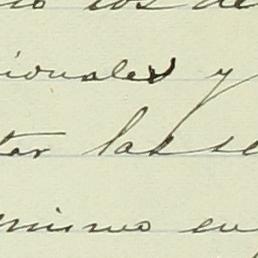 los de
ionales y
tar las se
mismo en